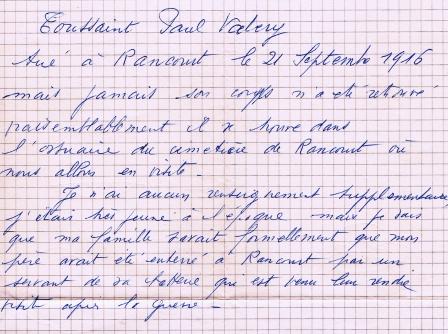 Toussaint Paul Valéry
tué à Rancourt le 21 Septembre 1916
mais jamais son corps n'a été retrouvé
vraisemblablement il se trouve dans
l'ossuaire du cimetière de Rancourt où
nous allons en visite -
Je n'ai aucun renseignement supplémentaire
j'étais très jeune à l'époque mais je sais
que ma famille savait formellement que mon
père avait été enterré à Rancourt par un
servant de sa batterie qui est venu leur rendre
visite après la guerre -